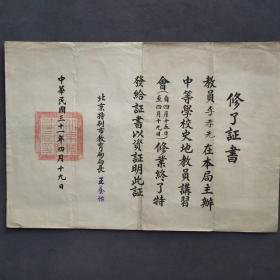 修了証書
教員李孝先在本局主辦
中等學校史地教員講習
會(自四月十五日至四月十九日)修業終了特
發給証書以資証明此証
北京特別市教育局局長王養怡
中華民國三十一年四月十九日